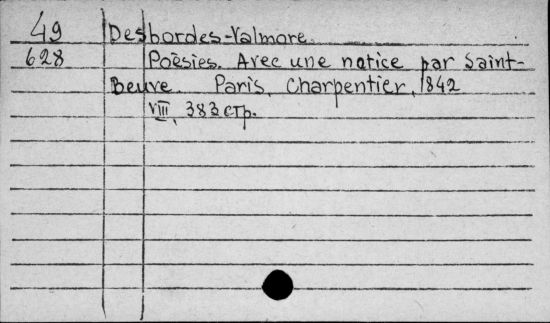 49 Desbordes-Valmore.
628 Poësies. Avec une notice par Saint-
Beuve. Paris, Charpentier, 1842
VIII, 383 стр.